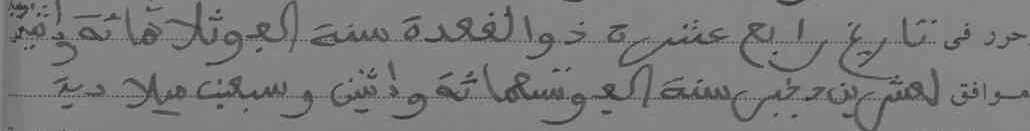 حرر في تاريخ رابع عشرة ذو القعدة سنة الف وثلاثمائة واثنين
موافق لعشرين دجنبر سنة الف وتسعمائة واثنين وسبعين ميلادية